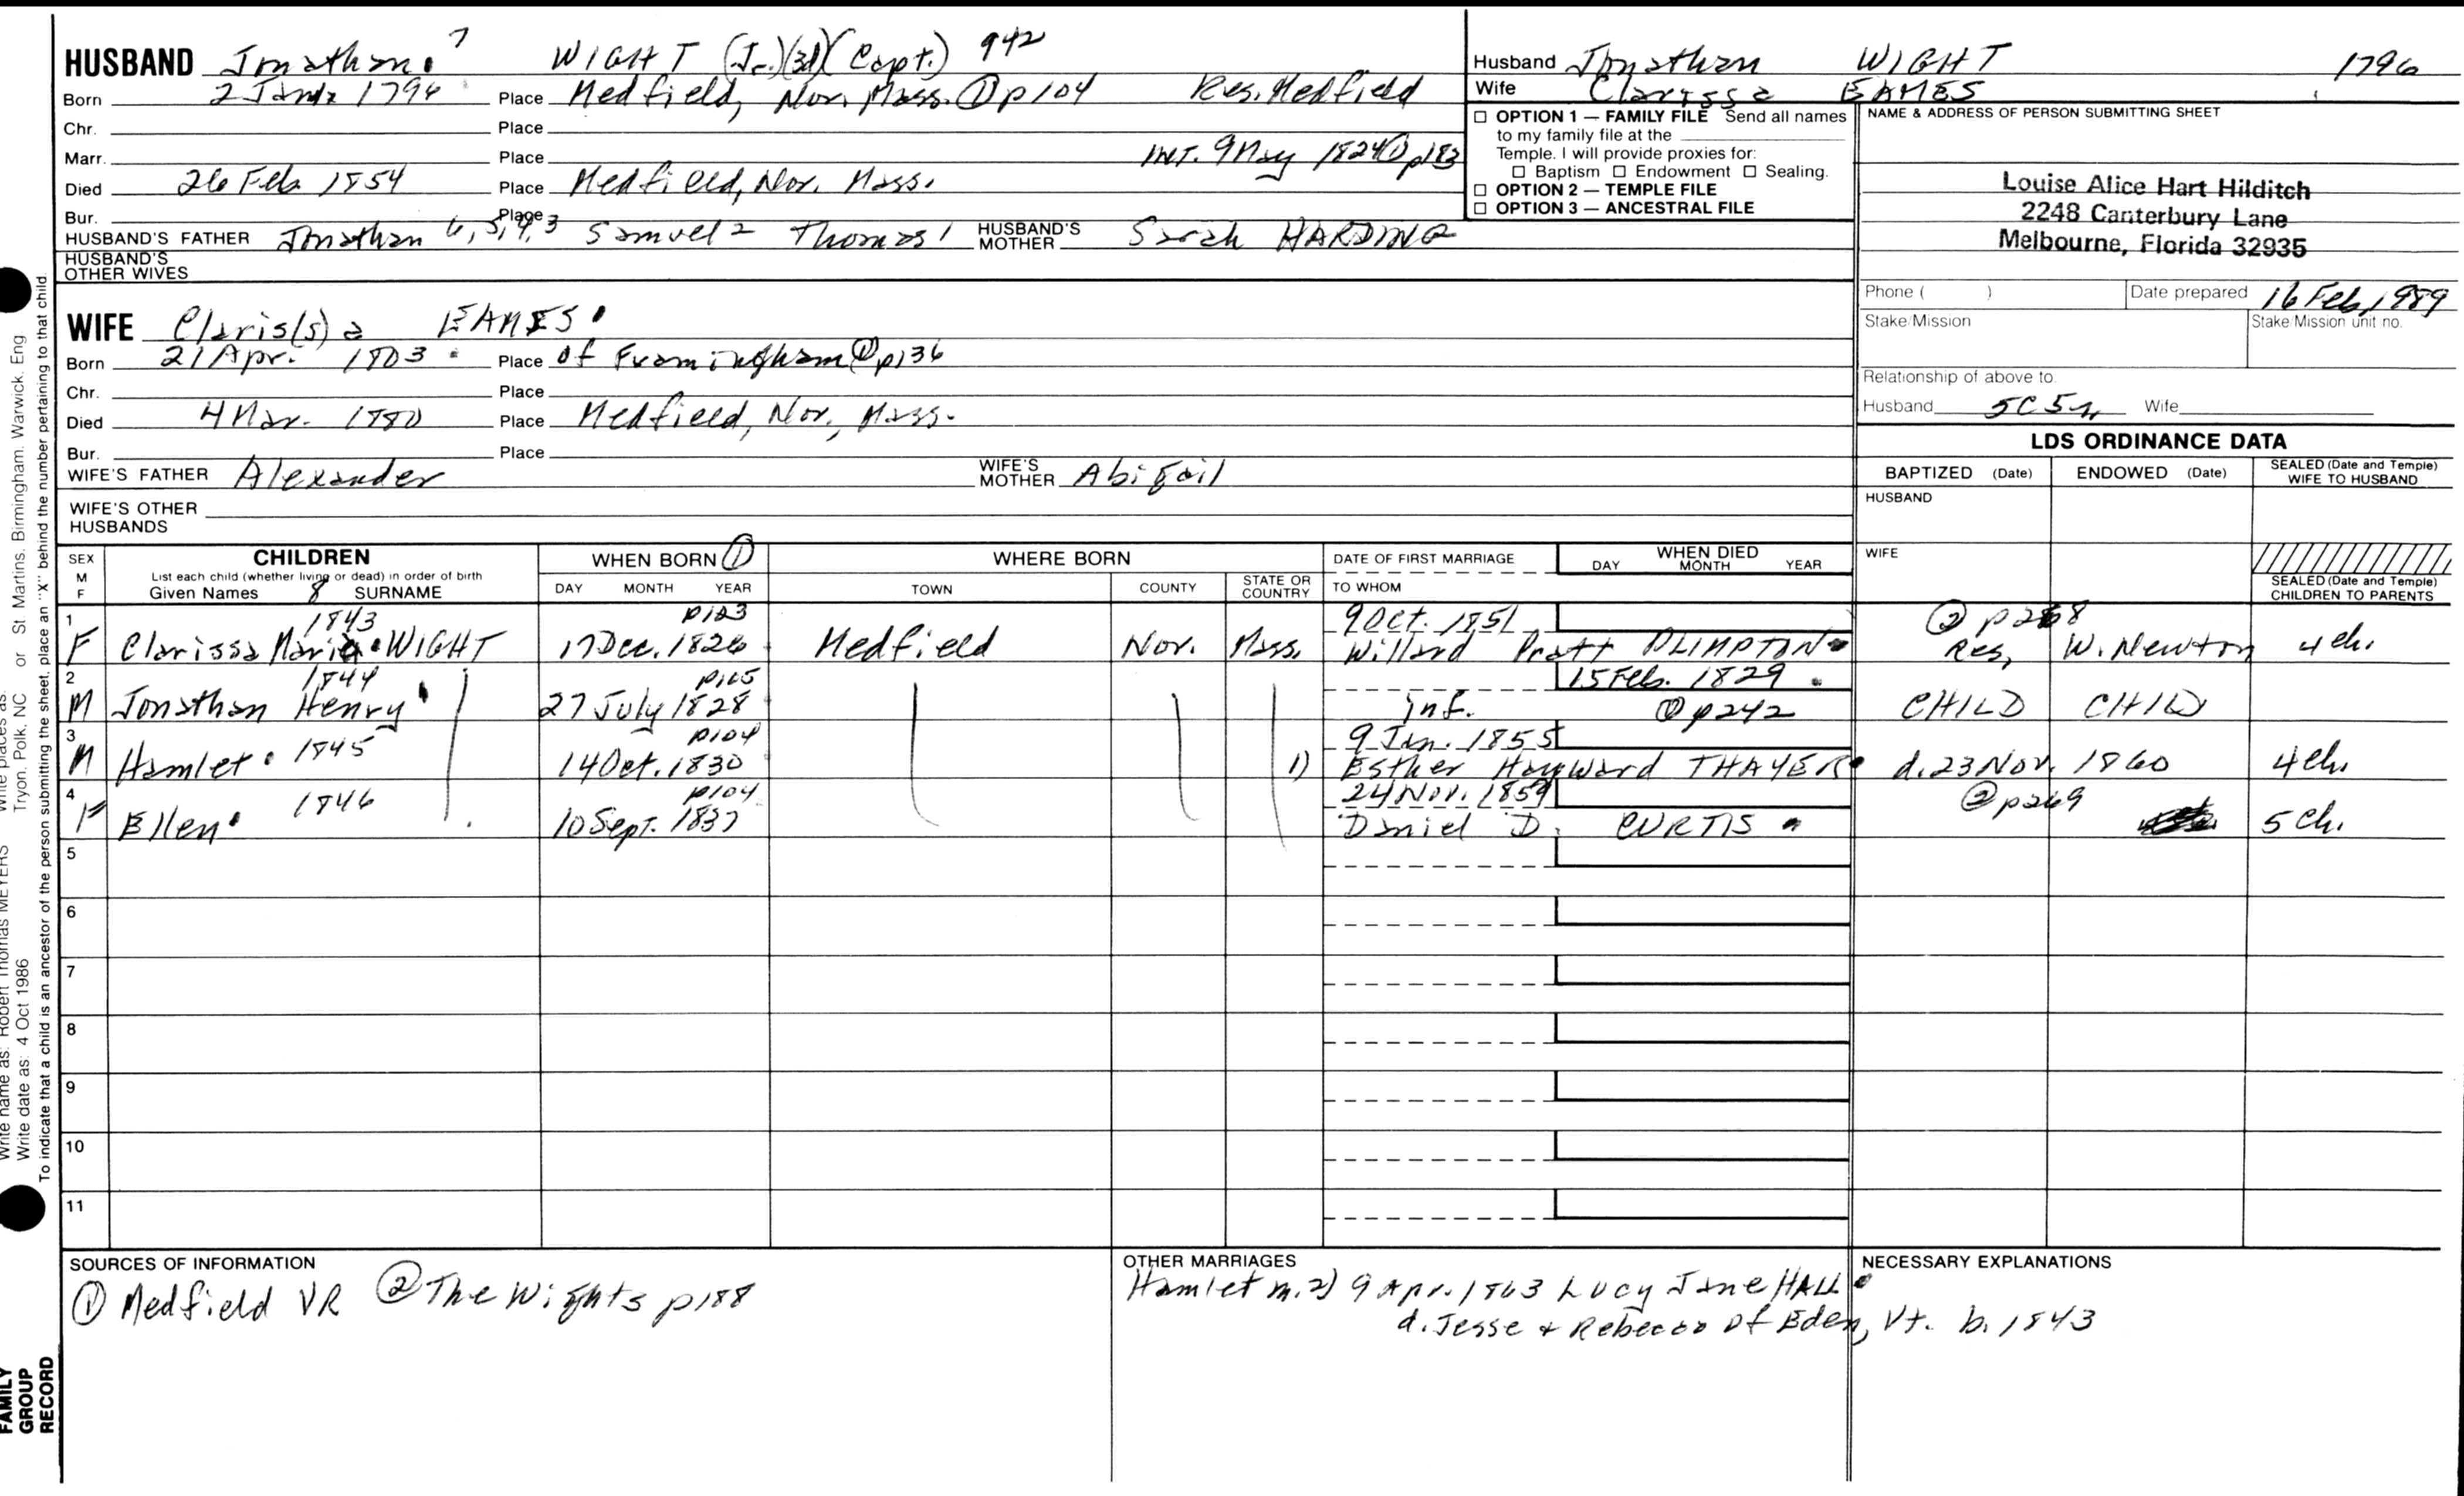 HUSBAND Jonathan 7 WIGHT (Jr.)(3d)(Capt.) 942
Born 2 1796 Place Medfield, Nor. Mass. ① p104 Res. Medfield
Chr. Place
Marr. Place INT. 9 May 1824 ① p183
Died 26 Feb 1854 Place Medfield, Nor. Mass.
Bur. Place
HUSBAND'S FATHER Jonathan 6,5,4,3 Samuel 2 Thomas 1 HUSBAND'S MOTHER Sarah HARDING
HUSBAND'S OTHER WIVES
WIFE Claris(s)a EAMES
Born 21 Apr. 1803 Place of Framingham ① p136
Chr. Place
Died 4 Mar. 1880 Place Medfield, Nor., Mass.
Bur. Place
WIFE'S FATHER Alexander WIFE'S MOTHER Abigail
WIFE'S OTHER HUSBANDS
Husband Jonathan WIGHT 1796
Wife Clarissa EAMES
☐ OPTION 1 — FAMILY FILE Send all names
to my family file at the
Temple. I will provide proxies for:
☐ Baptism ☐ Endowment ☐ Sealing.
☐ OPTION 2 — TEMPLE FILE
☐ OPTION 3 — ANCESTRAL FILE
NAME & ADDRESS OF PERSON SUBMITTING SHEET
Louise Alice Hart Hilditch
2248 Canterbury Lane
Melbourne, Florida 32935
Phone ( ) Date prepared 16 Feb, 1989
Stake/Mission Stake/Mission unit no.
Relationship of above to
Husband 5C5r Wife
LDS ORDINANCE DATA
BAPTIZED (Date) ENDOWED (Date) SEALED (Date and Temple) WIFE TO HUSBAND
HUSBAND
WIFE
SEALED (Date and Temple) CHILDREN TO PARENTS
SEX M F
CHILDREN
List each child (whether living or dead) in order of birth
Given Names 8 SURNAME
WHEN BORN ①
DAY MONTH YEAR
WHERE BORN
TOWN COUNTY STATE OR COUNTRY
DATE OF FIRST MARRIAGE
TO WHOM
WHEN DIED
DAY MONTH YEAR
1 1843 p123 9 Oct. 1851 ② p268
F Clarissa Maria WIGHT 17 Dec. 1826 Medfield Nor. Mass. Willard Pratt PLIMPTON Res, W. Newton 4 ch.
2 1844 15 Feb. 1829
M Jonathan Henry 27 July 1828 inf. ① p242 CHILD CHILD
3 p104 9 Jan. 1855
M Hamlet 1845 14 Oct. 1830 1) Esther Hayward THAYER d. 23 Nov. 1860 4 ch.
4 1846 p104 24 Nov. 1859 ② p269
F Ellen 10 Sept. 1837 Daniel D. CURTIS 5 Ch.
5
6
7
8
9
10
11
SOURCES OF INFORMATION
① Medfield VR ② The Wights p188
OTHER MARRIAGES
Hamlet m. 2) 9 Apr. 1863 Lucy Jane HALL
d. Jesse + Rebecca of Eden, Vt. b. 1843
NECESSARY EXPLANATIONS
St Martins, Birmingham, Warwick, Eng
or
Tryon, Polk, NC
Write places as:
Write name as: Robert Thomas MEYERS
Write date as: 4 Oct 1986
To indicate that a child is an ancestor of the person submitting the sheet, place an "X" behind the number pertaining to that child.
FAMILY
GROUP
RECORD